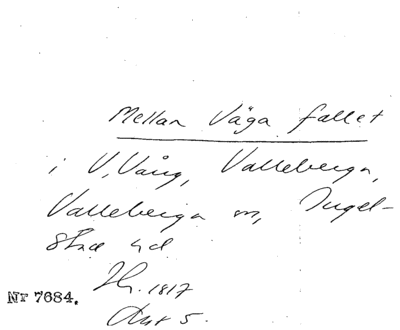 Mellan Väga fallet
i V. Vång, Valleberga,
Valleberga sn, Ingel-
stad hd
H. 1817
Akt 5.
Nr 7684.